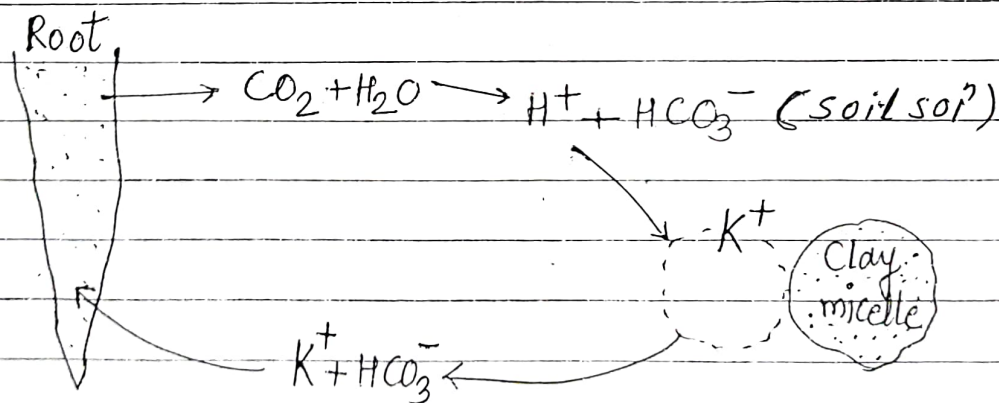 Root
CO₂ + H₂O → H⁺ + HCO₃⁻ (soil solⁿ)
K⁺
Clay
micelle
K⁺ + HCO₃⁻